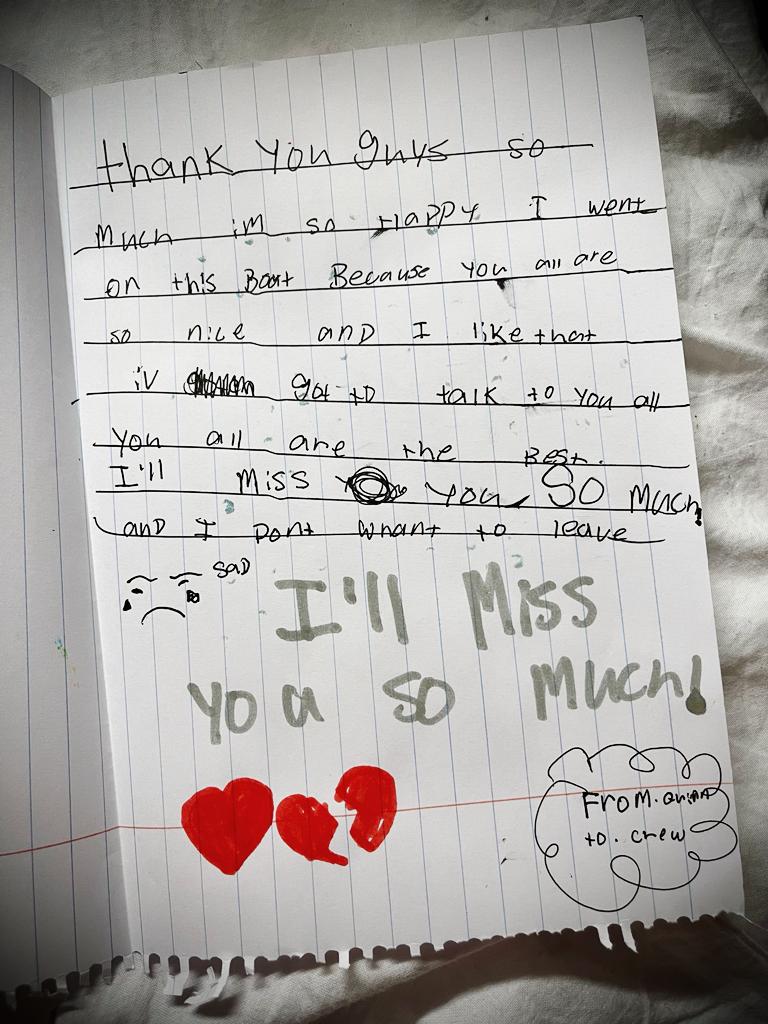 thank you guys so
Much im so HAPPY I went
on this Boat Because you all are
so nice anD I like that
iv got to talk to you all
you all are the Best.
I'll Miss you SO Much!
anD I Dont whant to leave
SAD
I'll Miss
you so Much!
FROM. Quinn
to. crew